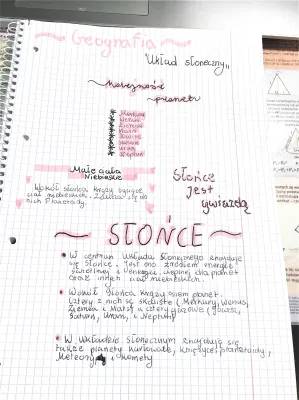 Geografia
"Układ słoneczny"
planet
Merkury
Wenus
Ziemia
Mars
Jowisz
Saturn
Uran
Neptun
Małe ciała
Niebieskie
Wokół słońca krąży tysiące
ciał niebieskich.
nich Planetoidy
Słońce
jest
gwiazdą
SŁOŃCE
W centrum Układu Słonecznego znajduje
się Słońce. Jest ono źródłem energii
świetlnej i energii cieplnej dla planet
oraz innych ciał niebieskich.
Wokół Słońca krąży osiem planet.
Cztery z nich są skaliste (Merkury, Wenus,
Ziemia i Mars) a cztery gazowe (Jowisz,
Saturn, Uran, i Neptun)
W układzie słonecznym znajdują się
także planety karłowate, księżyce, planetoidy,
Meteory i komety